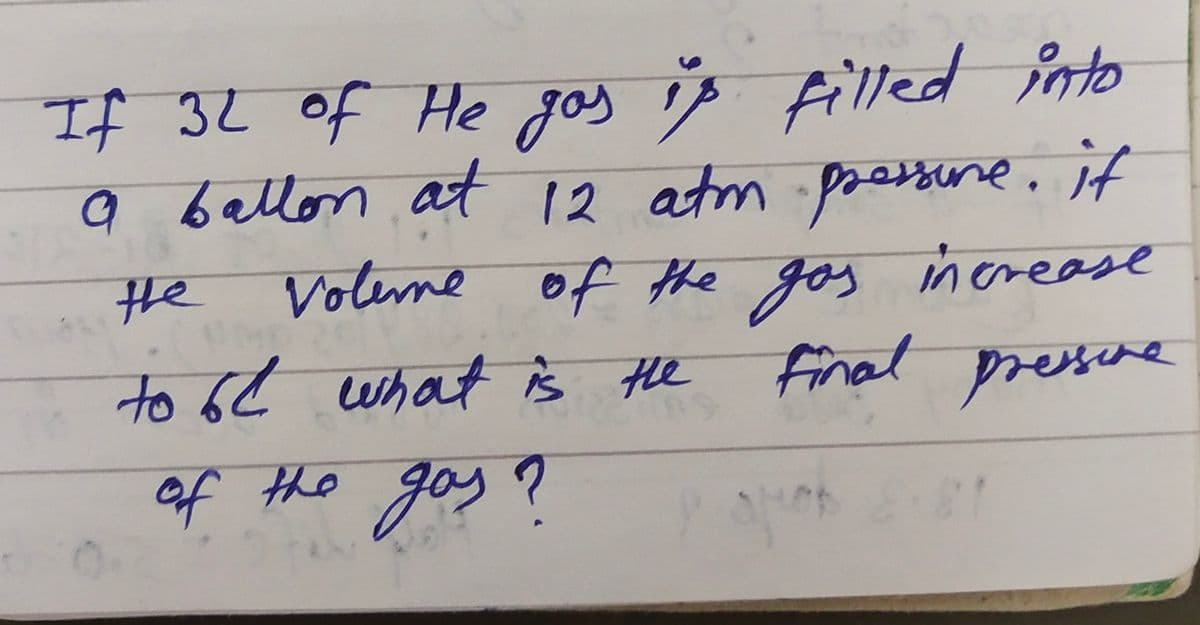 If 3L of He gas is filled into
a ballon at 12 atm pressure. if
the Volume of the gas increase
to 6L what is the final pressure
of the gas ?